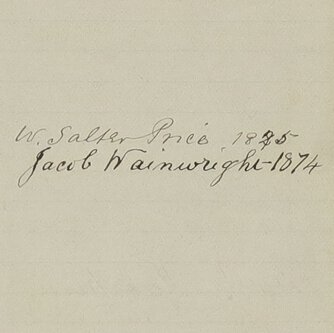 W. Salter Price 1875
Jacob Wainwright 1874